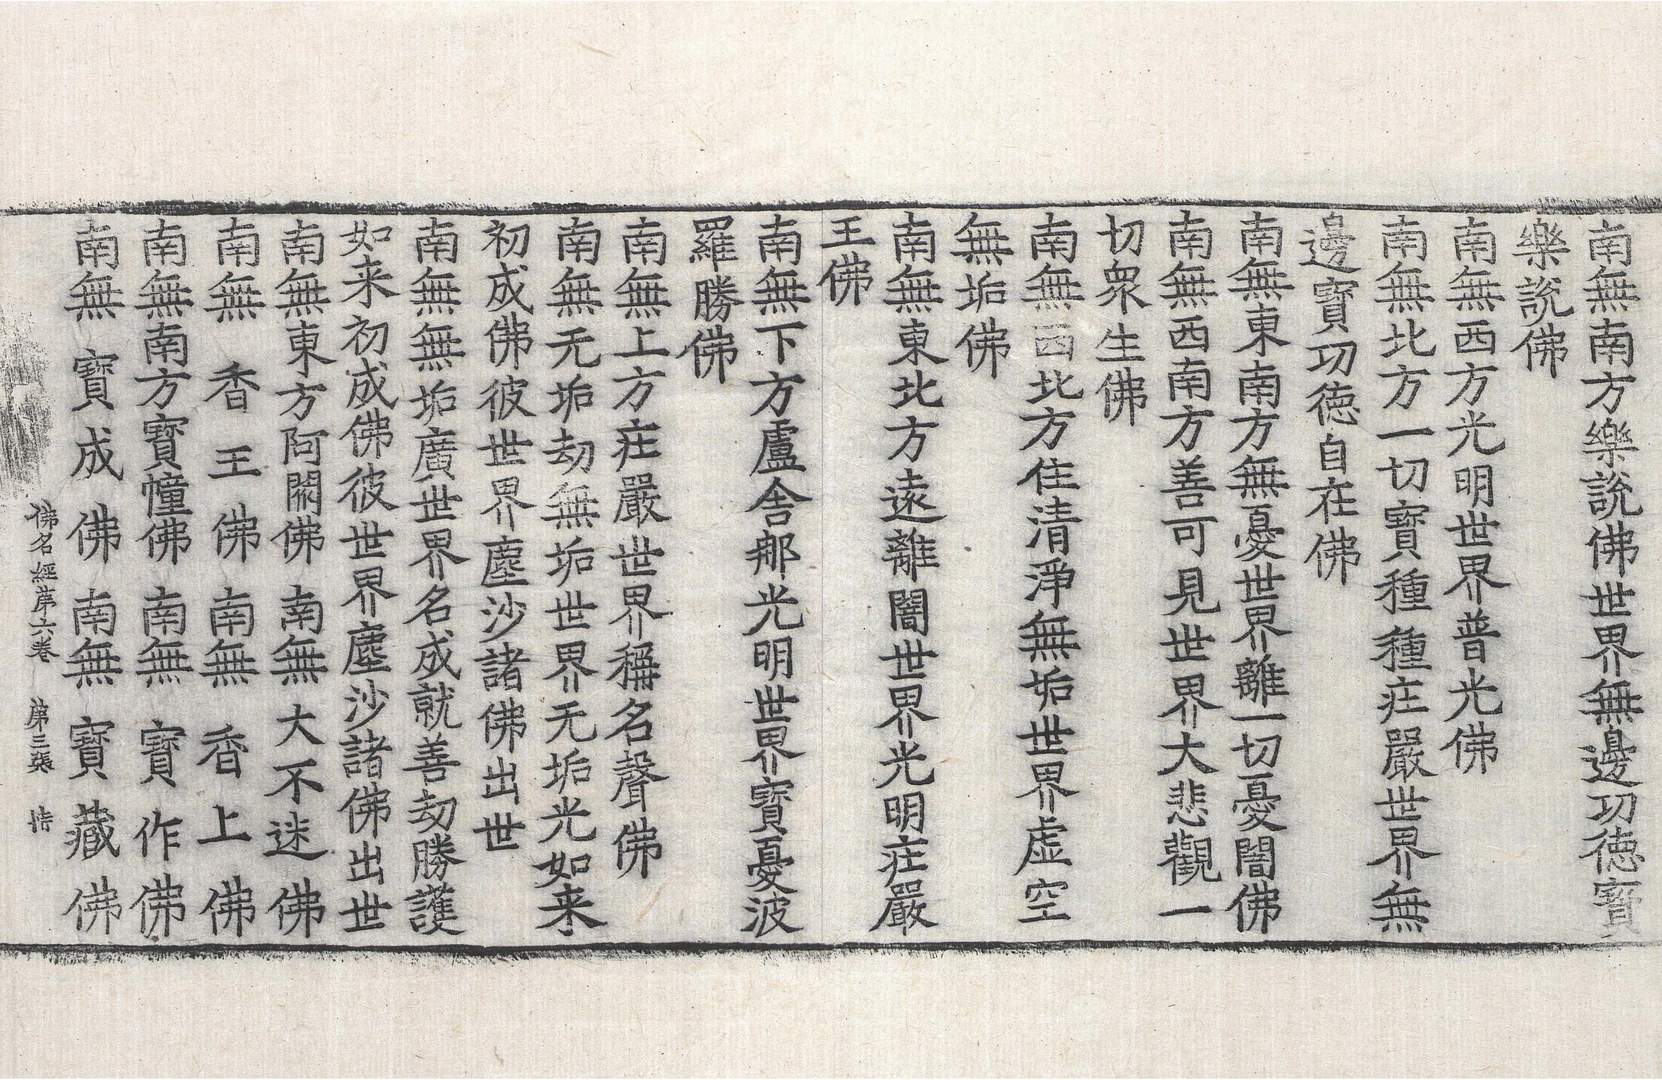 南無南方樂說佛世界無邊功德寶
樂說佛
南無西方光明世界普光佛
南無北方一切寶種種庄嚴世界無
邊寶功德自在佛
南無東南方無憂世界離一切憂闇佛
南無西南方善可見世界大悲觀一
切衆生佛
南無西北方住清淨無垢世界虛空
無垢佛
南無東北方遠離闇世界光明庄嚴
王佛
南無下方盧舍那光明世界寶憂波
羅勝佛
南無上方庄嚴世界稱名聲佛
南無无垢劫無垢世界无垢光如来
初成佛彼世界塵沙諸佛出世
南無無垢廣世界名成就善劫勝護
如来初成佛彼世界塵沙諸佛出世
南無東方阿閦佛 南無大不迷佛
南無香王佛 南無香上佛
南無南方寶幢佛 南無寶作佛
南無寶成佛 南無寶藏佛
佛名經第六卷 第三張